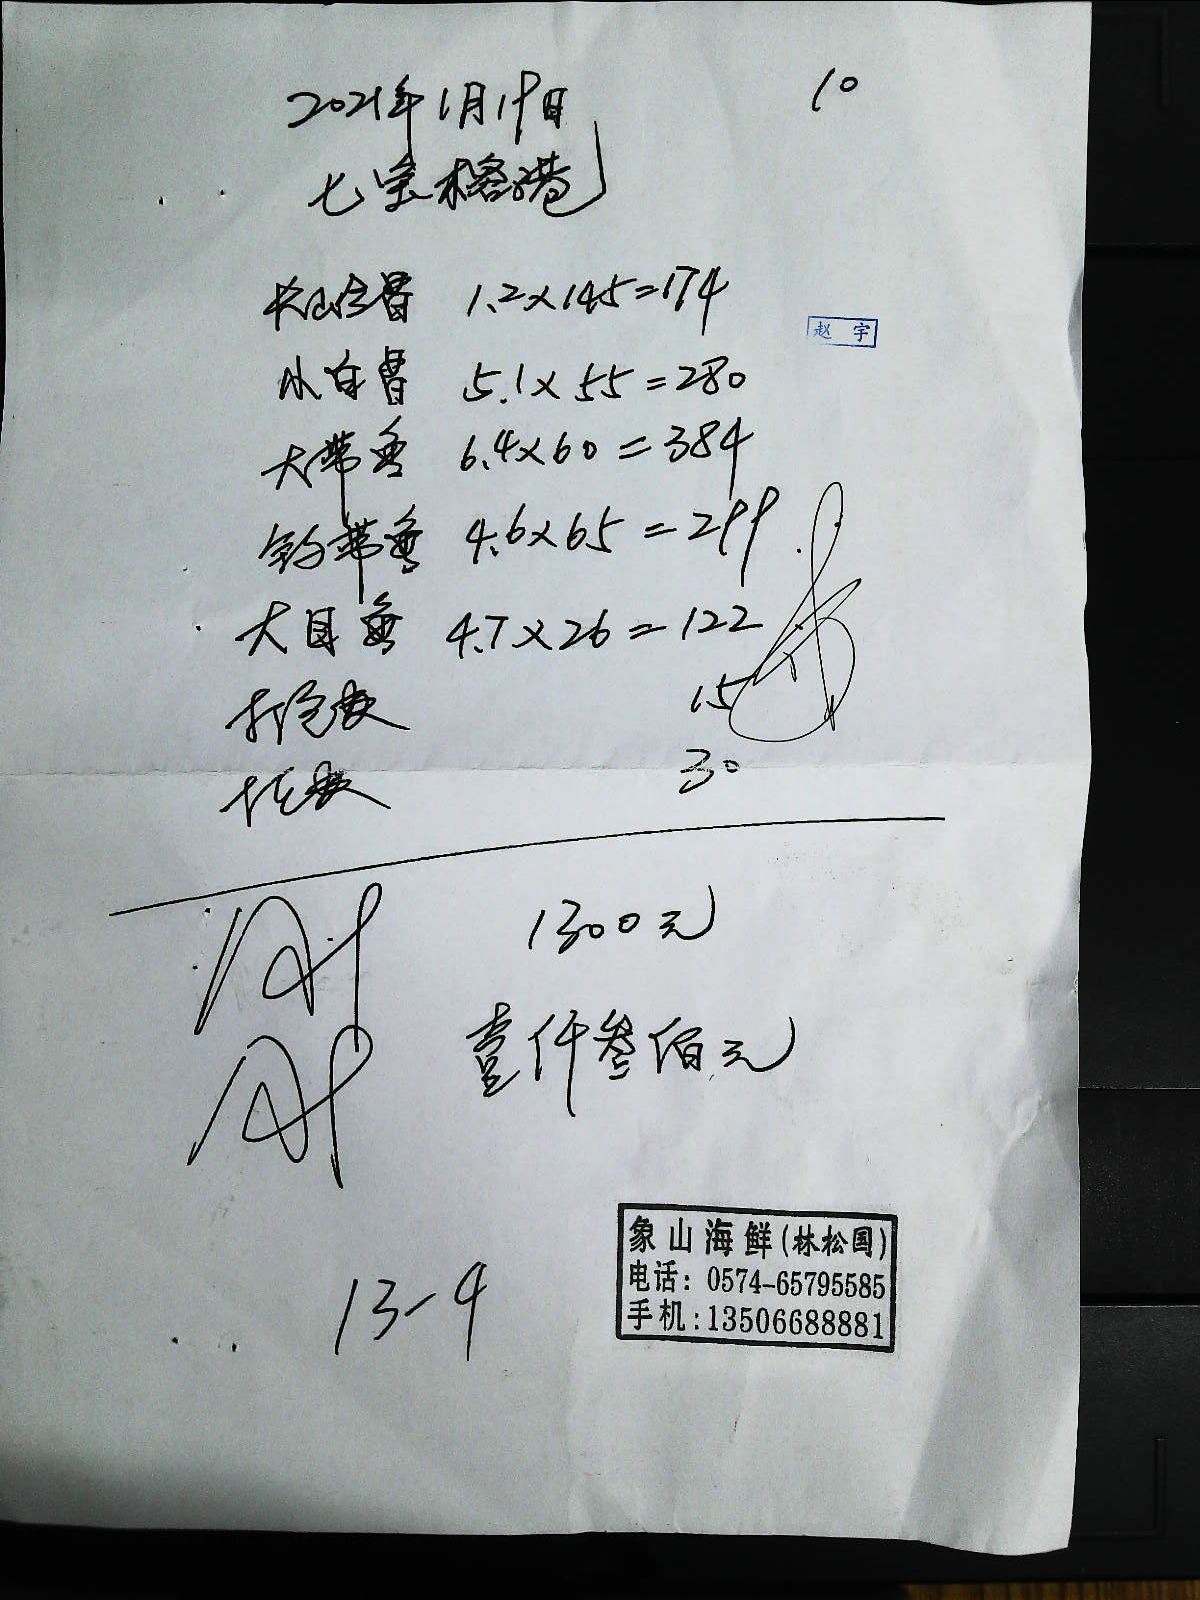 2021年1月19日
10
七宝格港
1.2×145=174
赵 宇
小白昌 5.1×55=280
大带鱼 6.4×60=384
钓带鱼 4.6×65=299
大目鱼 4.7×26=122
打包费 15
托费 30
1300元
壹仟叁佰元
象山海鲜(林松国)
电话: 0574-65795585
手机:13506688881
13-4